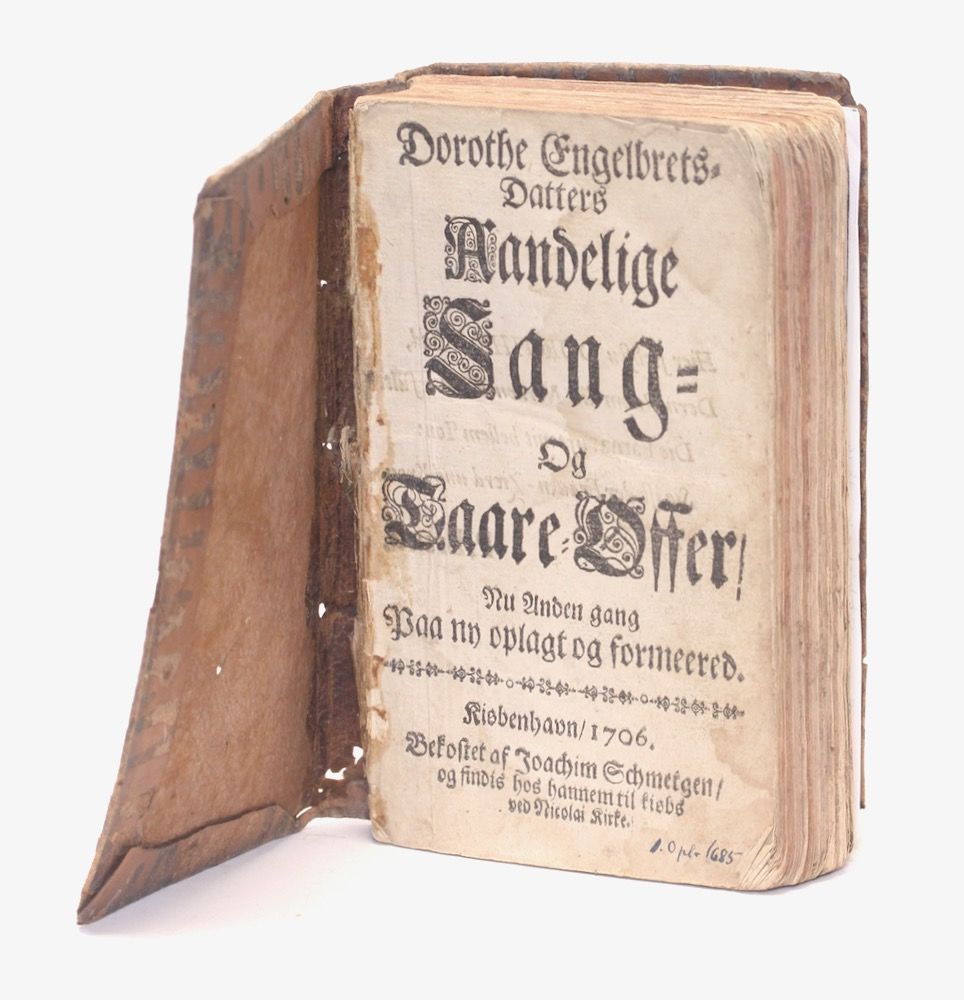 Dorothe Engelbrets-
Datters
Aandelige
Sang-
Og
Taare-Offer/
Nu Anden gang
Paa ny oplagt og formeered.
Kiøbenhavn/ 1706.
Bekostet af Joachim Schmetgen/
og findis hos hannem til kiøbs
ved Nicolai Kirke.
1. Opl. 1685